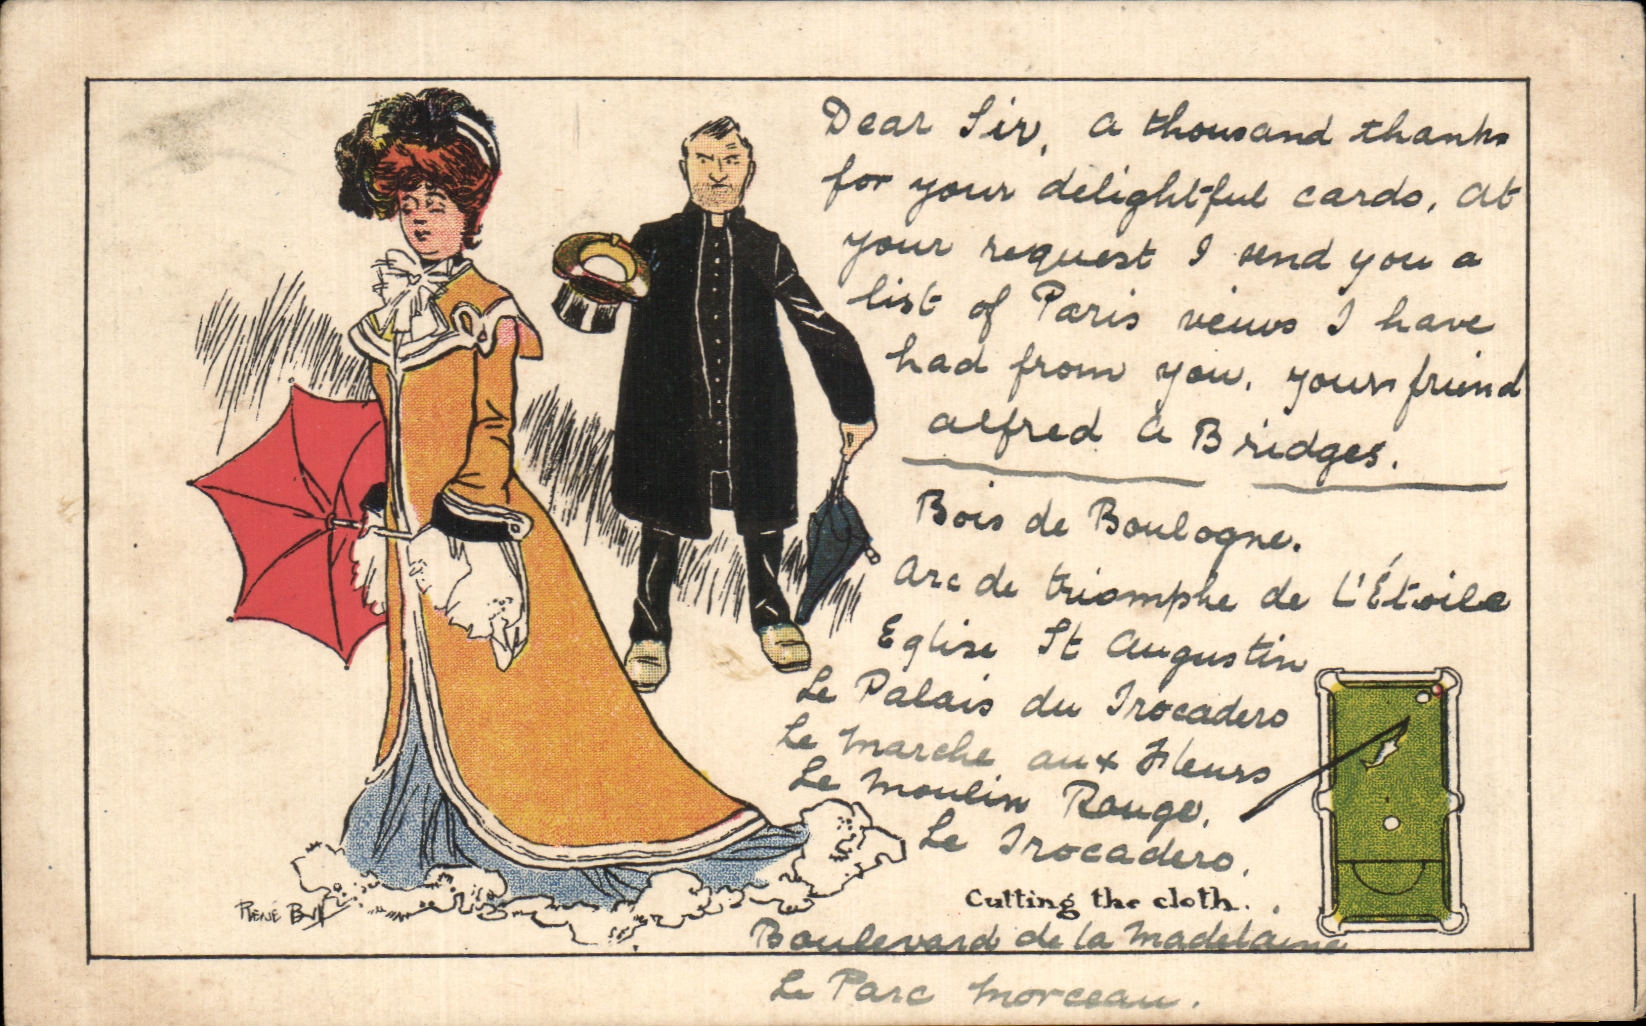 Dear Sir, a thousand thanks
for your delightful cards, at
your request I send you a
list of Paris views I have
had from you. yours friend
alfred a Bridges.
Bois de Boulogne.
Arc de triomphe de L'Étoile
Eglise St Augustin
Le Palais du Trocadero
Le Marche aux Fleurs
Le Moulin Rouge.
Le Trocadero.
Cutting the cloth.
Boulevard de la Madelaine
Le Parc Morceau.
RENÉ BULL